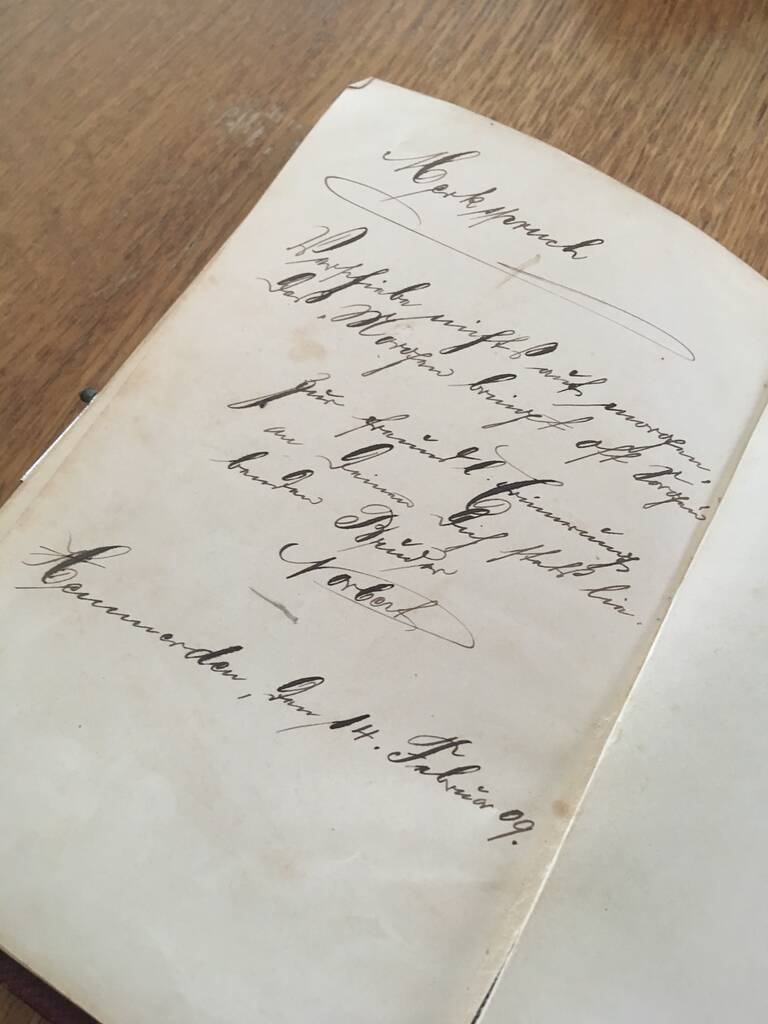 Merkspruch
Verschiebe nichts auf morgen.
Das "Morgen" bringt oft Sorgen
Zur freundl. Erinnerung
an Deinen Dich stets lie-
benden Bruder
Norbert,
Hemmerden, den 14. Februar 09.